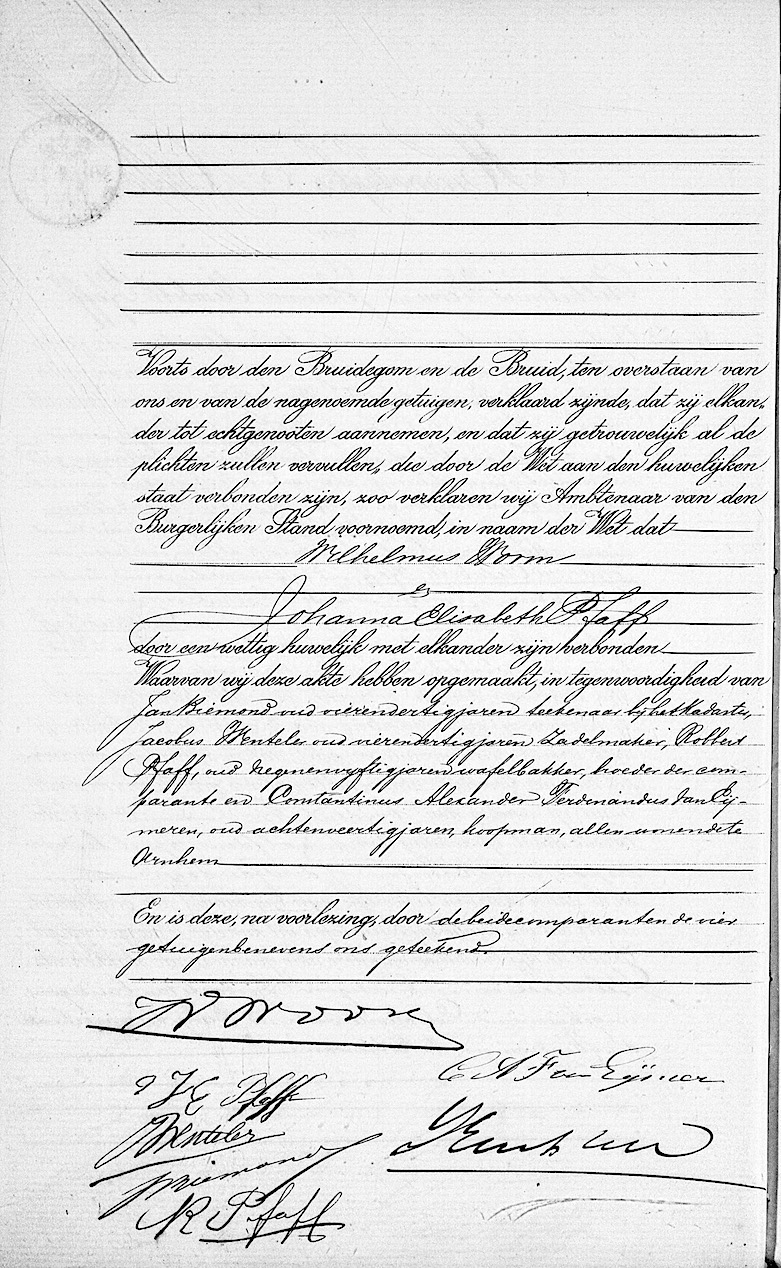 Voorts door den Bruidegom en de Bruid, ten overstaan van
ons en van de nagenoemde getuigen, verklaard zijnde, dat zij elkan„
der tot echtgenooten aannemen, en dat zij getrouwelijk al de
plichten zullen vervullen, die door de Wet aan den huwelijken
staat verbonden zijn, zoo verklaren wij Ambtenaar van den
Burgerlijken Stand voornoemd, in naam der Wet dat
Wilhelmus Worm
en
Johanna Elisabeth Pfaff
door een wettig huwelijk met elkander zijn verbonden
Waarvan wij deze akte hebben opgemaakt, in tegenwoordigheid van
Jan Biemond oud vierendertig jaren teekenaar bij het Kadaster,
Jacobus Wenteler oud vierendertig jaren Zadelmaker, Robbert
Pfaff, oud negenenvijftig jaren wafelbakker, broeder der com-
parante en Constantinus Alexander Ferdinandus van Eij-
meren, oud achtenveertig jaren, koopman, allen wonende te
Arnhem
En is deze, na voorlezing, door de beide comparanten de vier
getuigen benevens ons geteekend.
W Worm
C A F van Eijmeren
J E Pfaff
J Wenteler
J Biemond
R Pfaff